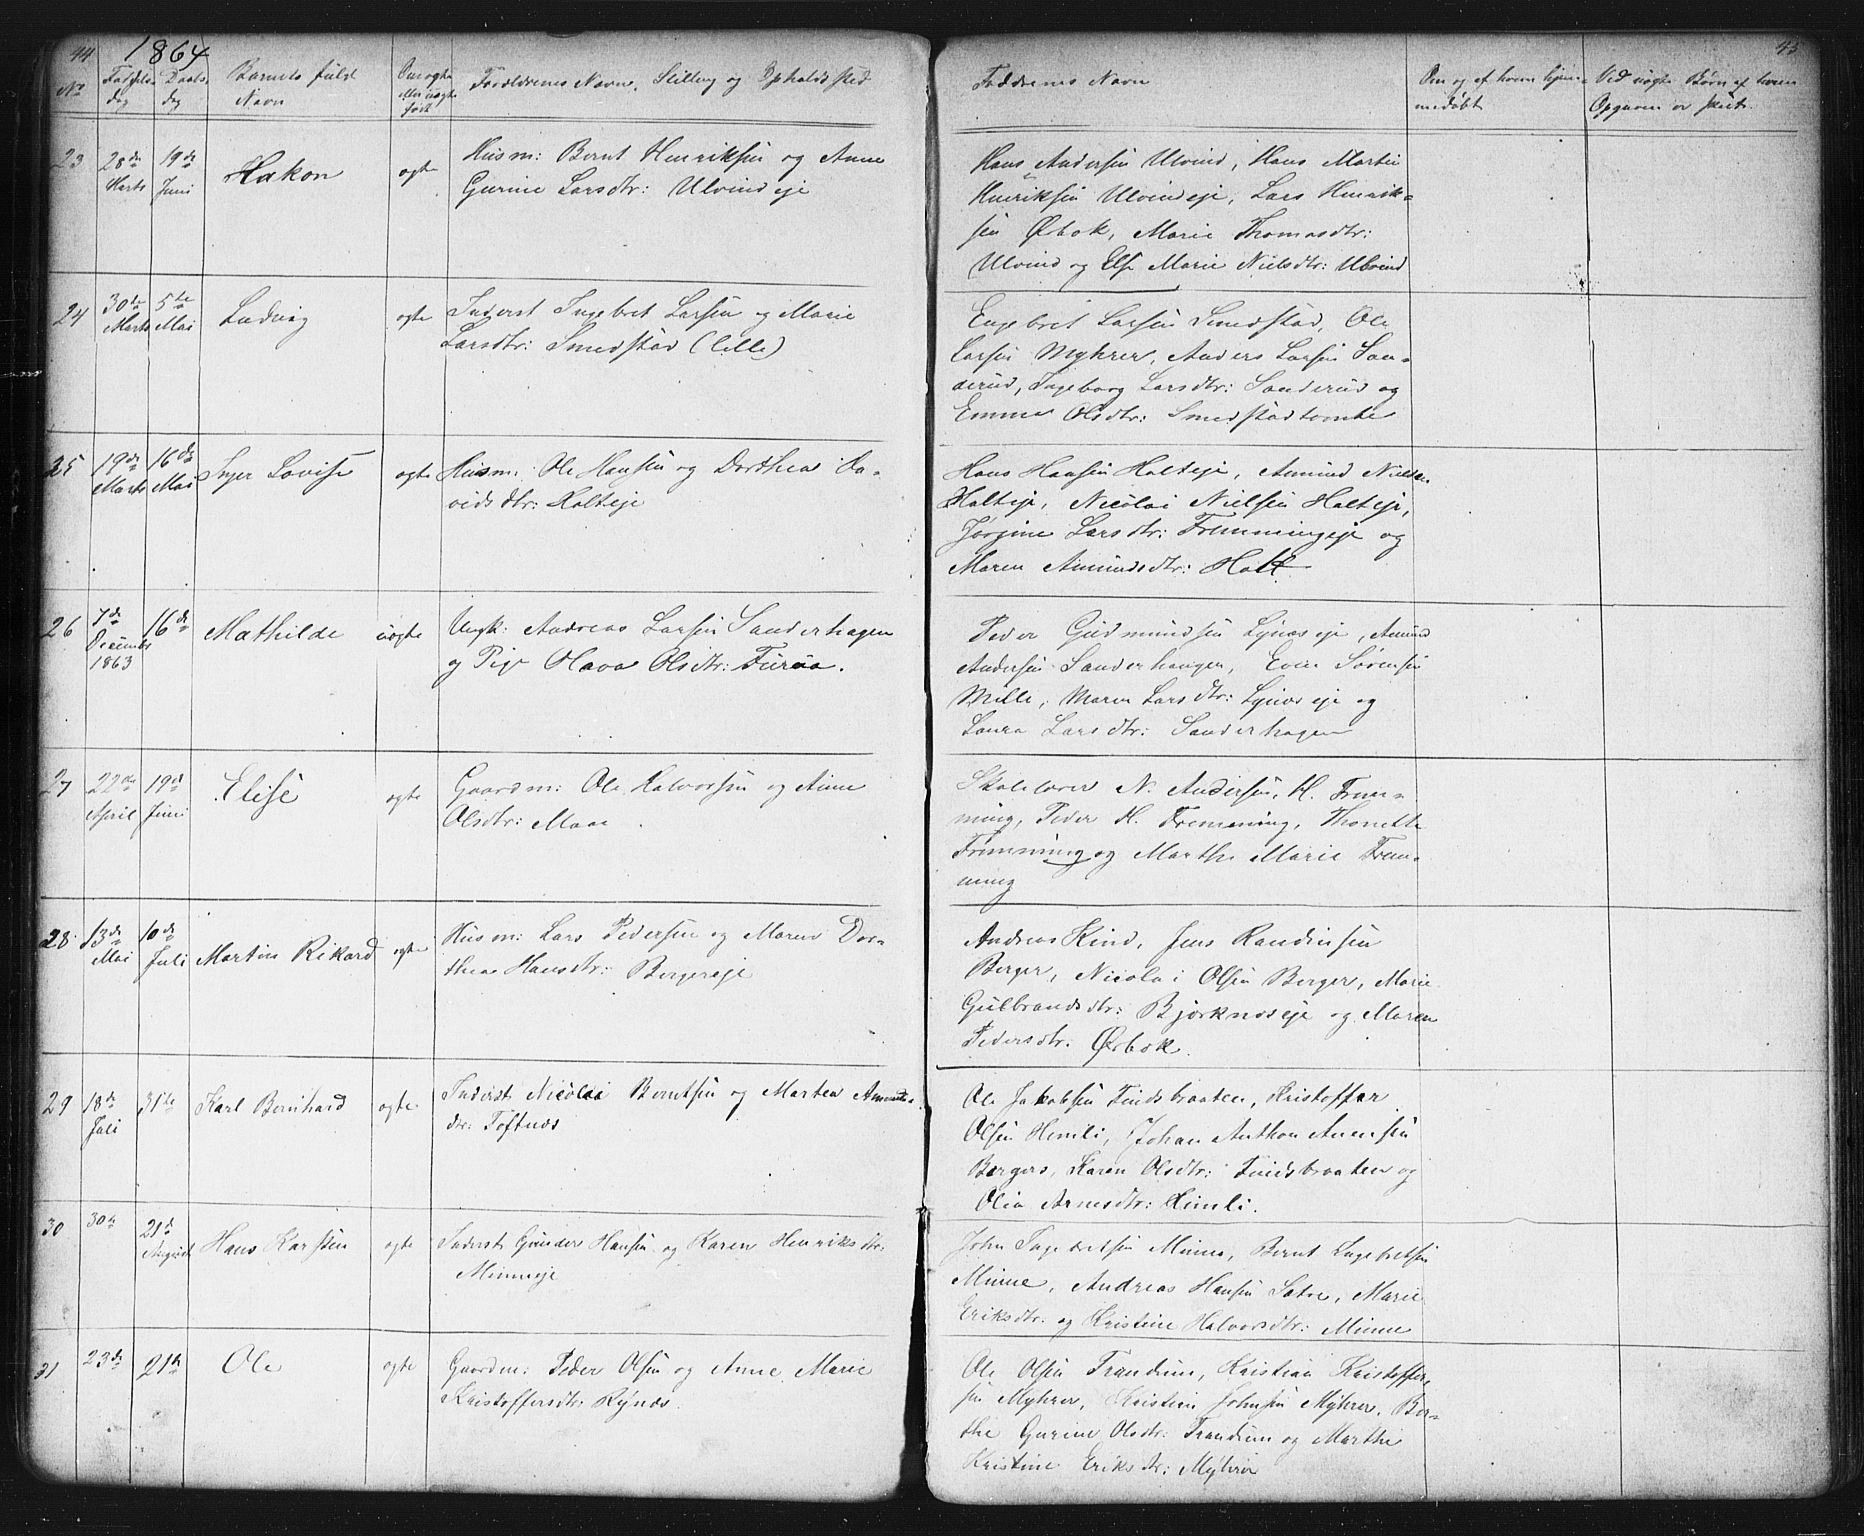 44
1864
No
Fødsels
dag
Daabs
dag
Barnets fulde
Navn
Om ægte
eller uægte
født
Forældrenes Navne, Stilling og Opholdssted
23
28de
Marts
19de
Juni
Hakon
ægte
Husm: Bernt Henriksen og Anne
Gurine Larsdtr: Ulvindeje
24
30te
Marts
5te
Mai
Ludvig
ægte
Inderst Ingebret Larsen og Marie
Larsdtr: Smedstad (lille)
25
19de
Marts
16de
Mai
Inger Lovise
ægte
Husm: Ole Hansen og Dorthea Ha-
vidsdtr: Holteje
26
7de
December
1863
16de
Mathilde
uægte
Ungk: Andreas Larsen Sanderhagen
og Pige Olava Olsdtr: Furua.
27
22de
April
19de
Juni
Elise
ægte
Gaardm: Ole Halvorsen og Anne
Olsdtr: Moae
28
13de
Mai
10de
Juli
Martin Rikard
ægte
Husm: Lars Pedersen og Maren Dor-
thea Hansdtr: Bergereje
29
18de
Juli
31te
Karl Bernhard
ægte
Inderst Nicolai Berntsen og Martea Amunds-
dtr: Toftnæs
30
30te
21de
August
Hans Karsten
ægte
Inderst Gunder Hansen og Karen Henriksdtr:
Minneeje
31
23de
21de
Ole
ægte
Gaardm: Peder Olsen og Anne Marie
Kristoffersdtr: Rynæs
45
Faddernes Navn
Om og af hvem hjem-
medøbt
Ved uægte Børn af hvem
Opgaven er skeet
Hans Andersen Ulvind, Hans Martin
Henriksen Ulvindeje, Lars Henrik-
sen Ørbæk, Marie Thomasdtr:
Ulvind og Else Marie Nielsdtr: Ulvind
Engebret Larsen Smedstad, Ole
Larsen Myhrer, Anders Larsen San-
derud, Ingeborg Larsdtr: Sanderud og
Emma Olsdtr: Smedstadtomte
Hans Hansen Holteje, Amund Nielsen
Holteje, Nicolai Nielsen Holteje,
Jørgine Larsdtr: Fremmingeje og
Maren Amundsdtr: Holt
Peder Gudmundsen Lynæseje, Amund
Andersen Sanderhaugen, Even Sørensen
Mille, Maren Larsdtr: Lynæseje og
Laura Larsdtr: Sanderhagen
Skolelærer N. Andersen, H. Frem-
ming, Peder H. Fremming, Thonette
Fremming og Marthe Marie Frem-
ming
Andreas Kind, Jens Randinsen
Berger, Nicolai Olsen Berger, Marie
Gulbrandsdtr: Bjørknæseje og Maren
Pedersdtr: Ørbæk.
Ole Jakobsen Findsbraaten, Kristoffer
Olsen Hemli, Johan Anthon Arnesen
Bergers, Karen Olsdtr: Findsbraaten og
Olia Arnesdtr: Himli.
John Ingebretsen Minne, Bernt Engebretsen
Minne, Andreas Hansen Sætre, Marie
Eriksdtr: og Kristine Halvorsdtr: Minne
Ole Olsen Trandum, Kristian Kristoffer-
sen Myhrer, Kristian Johnsen Myhrer, Ber-
the Gurine Olsdtr: Trandum og Marthe
Kristine Eriksdtr: Myhrer